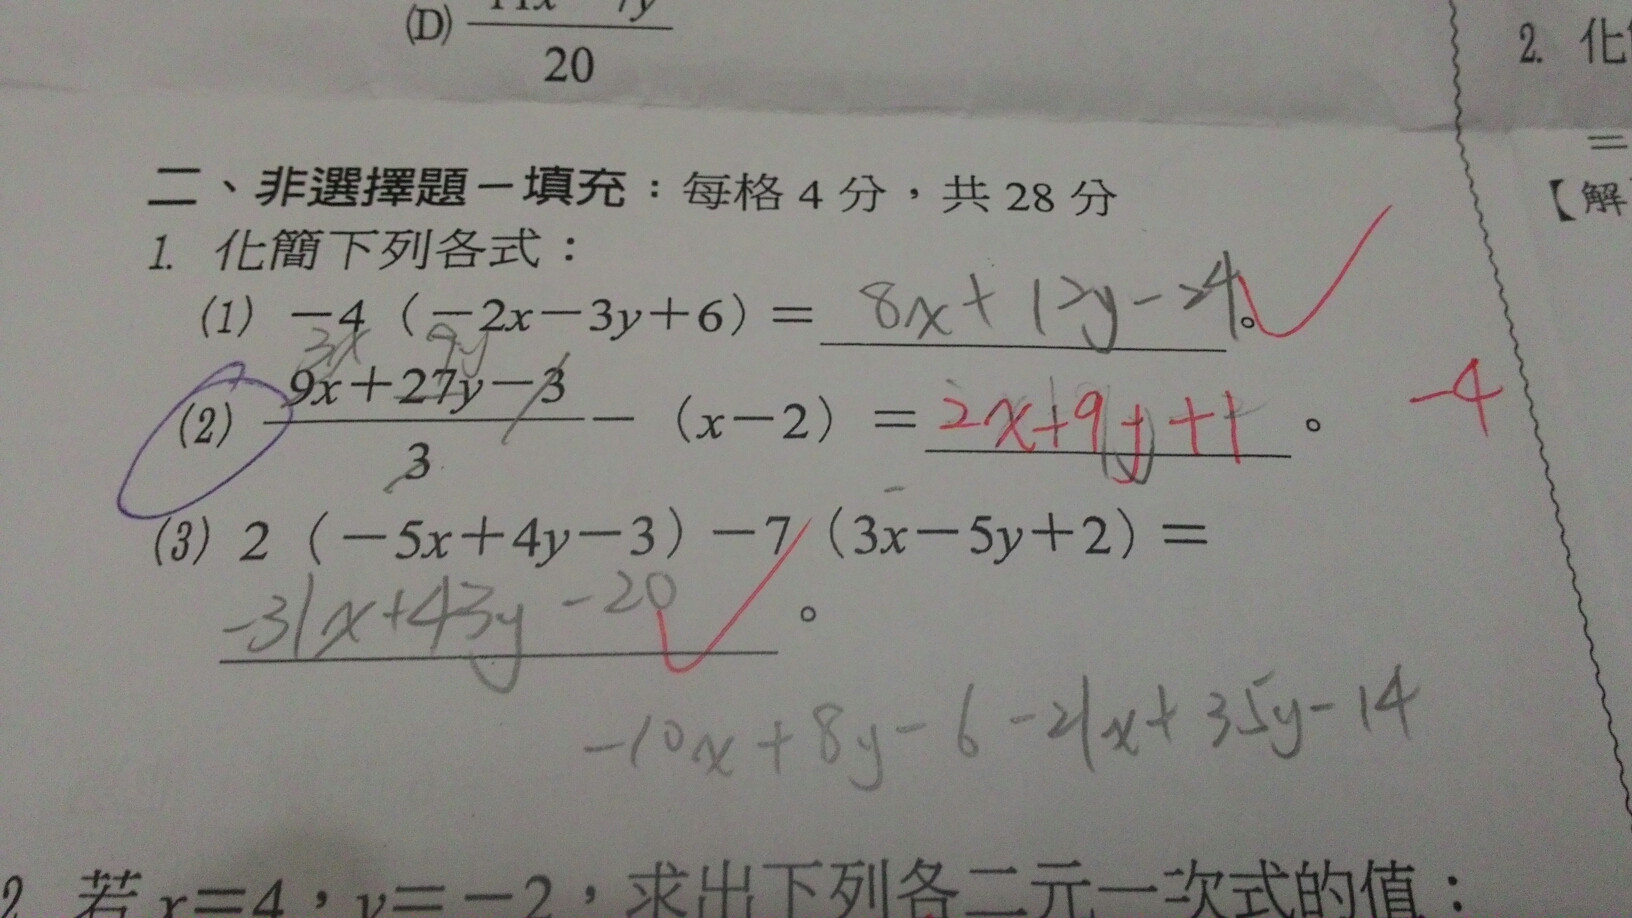 (D)
20
2. 化
=
【解
二、非選擇題－填充：每格 4 分，共 28 分
1. 化簡下列各式：
(1) －4（－2x－3y＋6）＝ 8x+12y-24。
3x 9y
(2) 9x＋27y－3
3
－（x－2）＝ 2x+9y+1。 -4
(3) 2（－5x＋4y－3）－7（3x－5y＋2）＝
-31x+43y-20。
-10x+8y-6-21x+35y-14
2. 若 x＝4，y＝－2，求出下列各二元一次式的值：